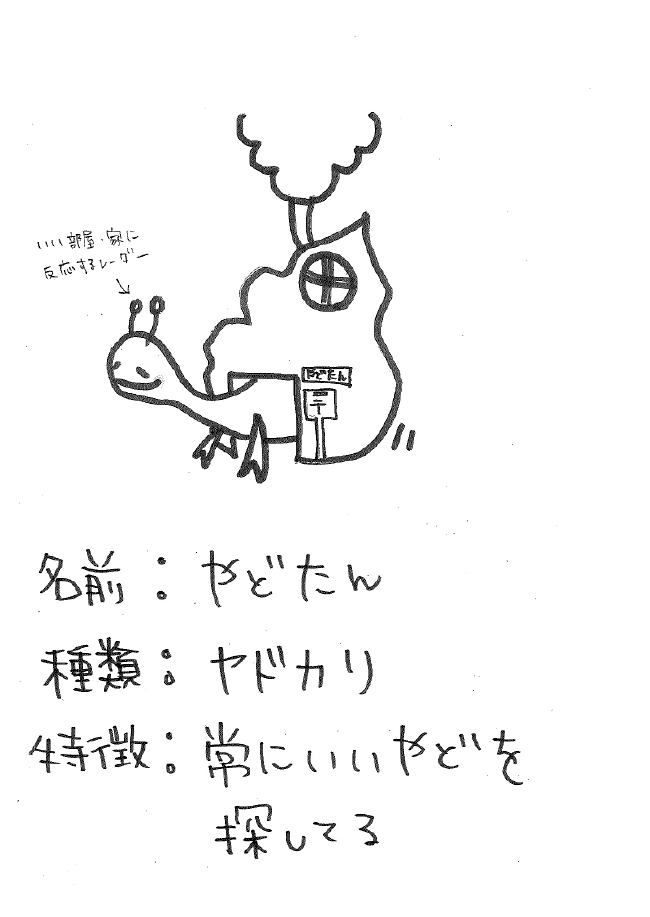 いい部屋・家に
反応するレーダー
やどたん
〒
名前：やどたん
種類：ヤドカリ
特徴：常にいいやどを
探してる